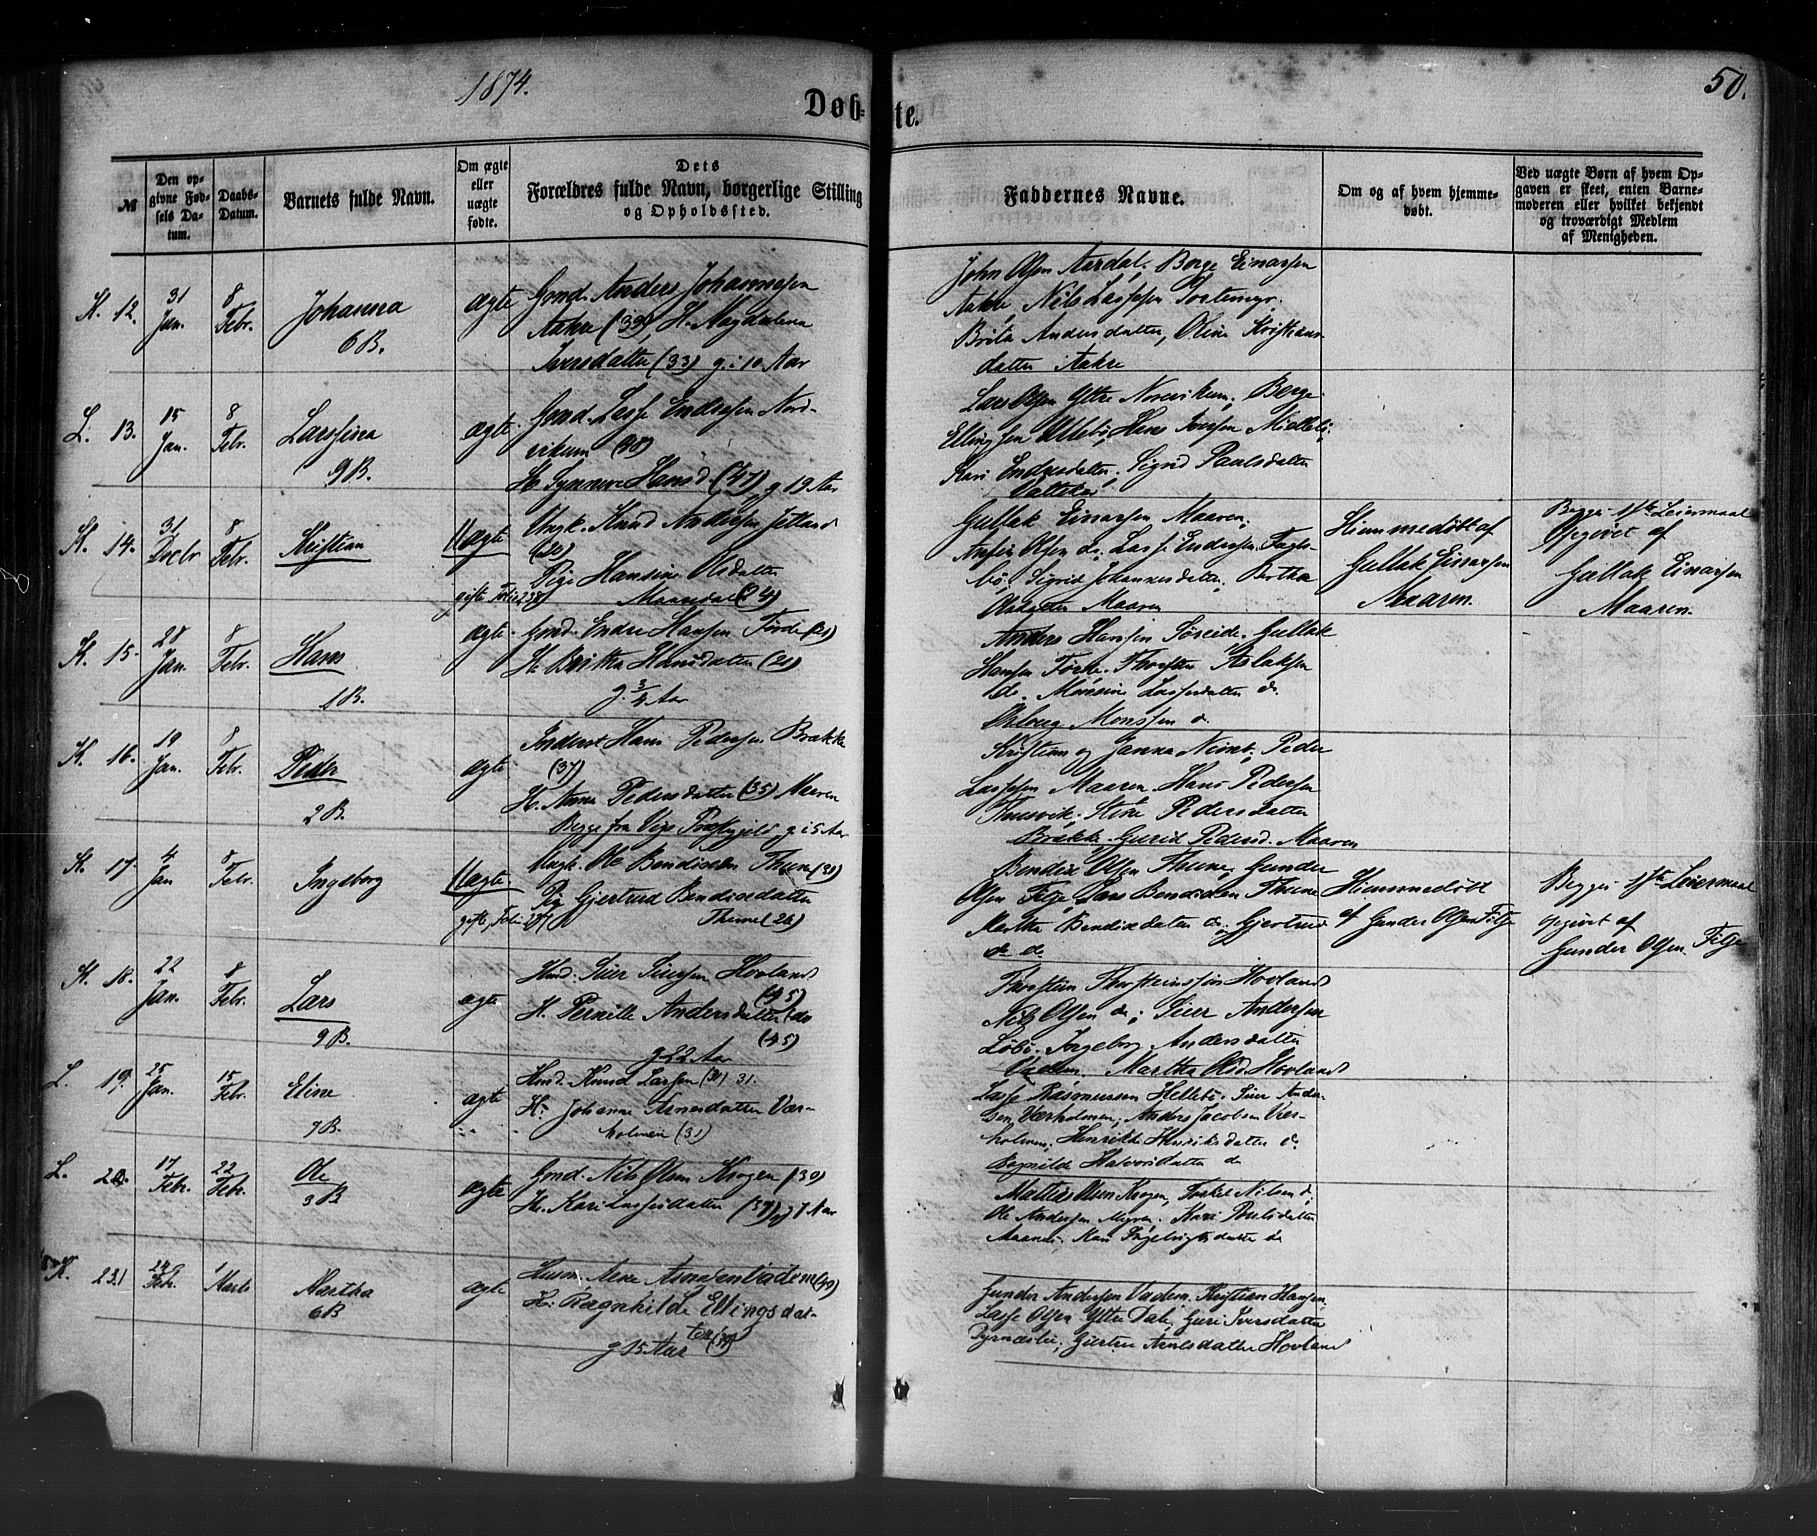 1874.
50.
Døb- te.
№
Den op-
givne Fød-
sels Da-
tum.
Daabs-
Datum.
Barnets fulde Navn.
Om ægte
eller
uægte
fødte.
Dets
Forældres fulde Navn, borgerlige Stilling
og Opholdssted.
Faddernes Navne.
Om og af hvem hjemme-
døbt.
Ved uægte Børn af hvem Op-
gaven er skeet, enten Barne-
moderen eller hvilket bekjendt
og troværdigt Medlem
af Menigheden.
K. 12. 31 Jan. 8 Febr. Johanna 6 B. ægte
Gmd. Anders Johannesen
Aakre (33), H. Magdalena
Iversdatter (33) g. i 10 Aar
John Olsen Aardal. Børge Einarsen
Aakre, Nils Lassesen
Brita Andersdatter, Oline Kristians
datter Aakre
L. 13. 15 Jan. 8 Febr. 9 B. ægte.
Gmd. Lasse Endresen Nord-
vikum
H. Synneve Hansd. (47) g 19 Aar
Lars Olsen Ytre Nordvikum, Børge
Ellingsen Hans Iversen
Kari Endresdatter. Sigrid Paulsdatter
K. 14. 31 Decbr 8 Febr. Kristian Uægte
gifte, Folio 238
Ungk. Knud Andersen Jetland
Pige Hansine Olsdatter
Maaredal (24)
Gullak Einarsen Maaren.
Olsen do. Lasse Endresen Fagle-
bø. Sigrid Johannesdatter. Bertha
Olsdatter Maaren
Hiemmedøbt af
Gullak Einarsen
Maaren.
Begges 1ste Leiermaal
Opgivet af
Gullak Einarsen
Maaren.
K. 15. 28 Jan. 8 Febr. Hans 1 B. ægte.
Gmd. Endre Hansen Førde (21)
H. Britha Hansdatter (21)
g. 3/4 Aar
Anders Hansen Søreide. Gullak
Hansen Førde. Thorsten Aslaksen
do. Monsine Lassesdatter do.
Monssen d.
K. 16. 19 Jan. 8 Febr. Peder 2 B. ægte
Inderst Hans Pedersen Brække
(37)
H. Anna Pedersdatter (35) Maaren
Begge fra Vigs Præstegjeld g i 5 Aar
Kristian og Janna Peder
Lassesen Maaren, Hans Pedersen
Stine Pedersdatter
Brække. Gurid Pedersd. Maaren
K. 17. 4 Jan 8 Febr. Ingeborg Uægte.
gifte, Folio 237
Ungk. Ole Bendixen Thune (31)
Pig. Gjertrud Bendixdatter
Thune (26)
Bendix Olsen Thune, Gunder
Olsen Filje, Lars Bendixen Thune
Martha Bendixdatter do, Gjertrud
do do.
Hiemmedøbt
af Gunder Olsen Filje
Begges 1ste Leiermaal
opgivet af
Gunder Olsen Filje
K. 18. 22 Jan. 8 Febr. Lars 9 B. ægte
Hmd. Siur Siursen Hovland
(45)
H. Pernille Andersdatter do
(45)
g 22 Aar
Thorstein Thorsteinssøn Hovland
Nils Olsen do; Siur Andersen
Løbø. Ingeborg Andersdatter
Vadem. Martha Olsd Hovland
L. 19. 25 Jan. 15 Febr. Eline 7 B. ægte
Hmd. Knud Larsen (31) 31.
H. Johanne Arnesdatter Vær-
holmen (31)
Lasse Rasmussen Hellebø, Siur Ander-
sen Værholmen, Anders Jacobsen Vær-
holmen, Henrikke Henriksdatter do
Ragnilde Halvorsdatter do
L. 20. 17 Febr. 22 Febr. Ole 3 B ægte
Gmd. Nils Olsen Krogen (39)
H. Kari Lassesdatter (37) g 7 Aar
Mathias Olsen Krogen, Torkel Nilsen d,
Ole Andersen Myren. Kari Poulsdatter
Kari Ingebrigtsdatter do
K. 21 Febr. 1 Marts Martha 6 B ægte
Husm. Arne Arnesen Vadem (49)
H. Ragnhilde Ellingsdat-
ter (39)
g 15 Aar
Gunder Andersen Vadem. Kristian Hansen,
Lasse Olsen Ytre Dale, Guri Iversdatter
Gjertrue Arnesdatter Hovland